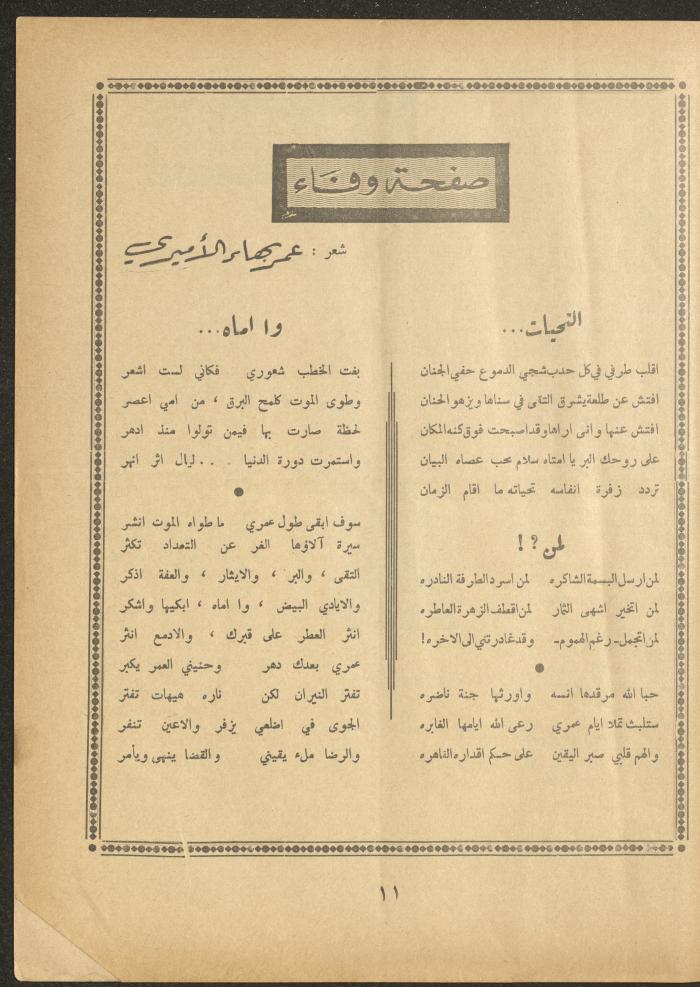 صفحة وفاء
شعر : عمر بهاء الأميري
التحيات...
اقلب طرفي في كل حدب شجي الدموع حفي الجنان
افتش عن طلعة يشرق التقى في سناها ويزهو الحنان
افتش عنها وانى اراها وقد اصبحت فوق كنه المكان
على روحك البر يا امتاه سلام محب عصاه البيان
تردد زفرة انفاسه تحياته ما اقام الزمان
لمن ؟ !
لمن ارسل البسمة الشاكره لمن اسرد الطرفة النادره
لمن اتخير اشهى الثار لمن اقطف الزهرة العاطره
لمن اتجمل ـ رغم الهموم ـ وقد غادرتني الى الاخره !
حبا الله مرقدها انسه واورثها جنة ناضره
ستلبث تملا ايام عمري رعى الله ايامها الغابره
والهم قلبي صبر اليقين على حكم اقداره القاهره
وا اماه...
بغت الخطب شعوري فكاني لست اشعر
وطوى الموت كلمح البرق ، من امي اعصر
لحظة صارت بها فيمن تولوا منذ ادهر
واستمرت دورة الدنيا . . . ليال اثر انهر
سوف ابقى طول عمري ما طواه الموت انشر
سيرة آلاؤها الغر عن التعداد تكثر
التقى ، والبر ، والايثار ، والعفة اذكر
والايادي البيض ، وا اماه ، ابكيها واشكر
انثر العطر على قبرك ، والادمع انثر
عمري بعدك دهر وحنيني العمر يكبر
تفتر النيران لكن ناره هيهات تفتر
الجوى في اضلعي يزفر والاعين تنفر
والرضا ملء يقيني والقضا ينهى ويأمر
١١